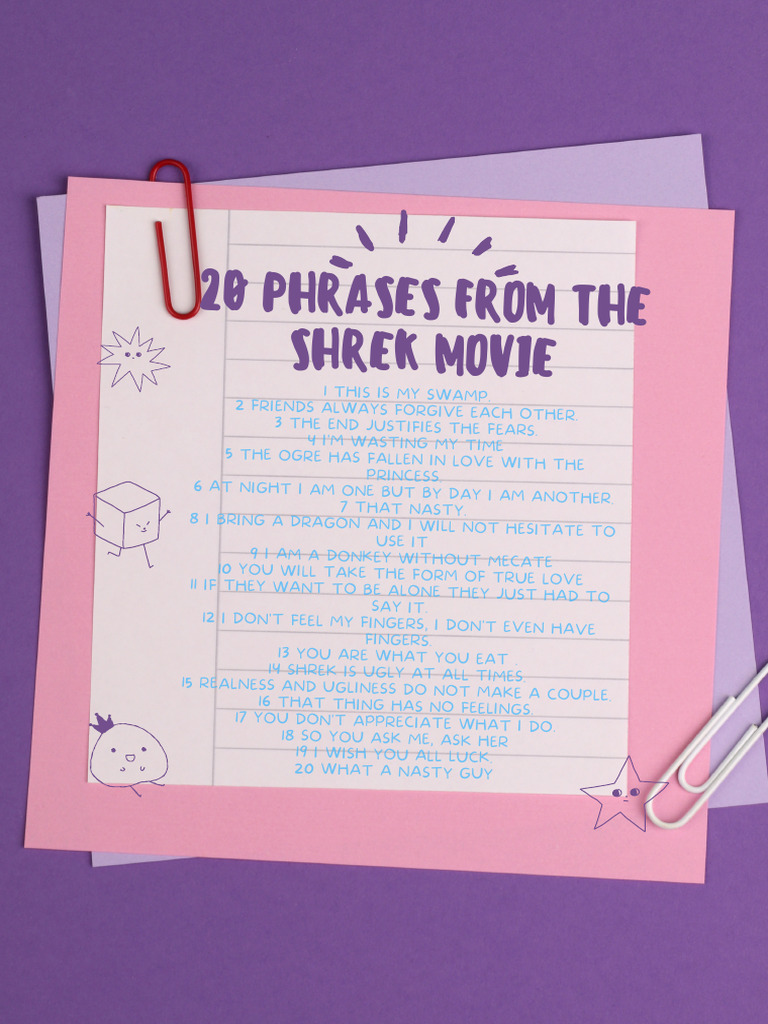 20 PHRASES FROM THE
SHREK MOVIE
1 THIS IS MY SWAMP.
2 FRIENDS ALWAYS FORGIVE EACH OTHER.
3 THE END JUSTIFIES THE FEARS.
4 I'M WASTING MY TIME
5 THE OGRE HAS FALLEN IN LOVE WITH THE
PRINCESS.
6 AT NIGHT I AM ONE BUT BY DAY I AM ANOTHER.
7 THAT NASTY.
8 I BRING A DRAGON AND I WILL NOT HESITATE TO
USE IT
9 I AM A DONKEY WITHOUT MECATE
10 YOU WILL TAKE THE FORM OF TRUE LOVE
11 IF THEY WANT TO BE ALONE THEY JUST HAD TO
SAY IT.
12 I DON'T FEEL MY FINGERS, I DON'T EVEN HAVE
FINGERS.
13 YOU ARE WHAT YOU EAT .
14 SHREK IS UGLY AT ALL TIMES.
15 REALNESS AND UGLINESS DO NOT MAKE A COUPLE.
16 THAT THING HAS NO FEELINGS.
17 YOU DON'T APPRECIATE WHAT I DO.
18 SO YOU ASK ME, ASK HER
19 I WISH YOU ALL LUCK.
20 WHAT A NASTY GUY